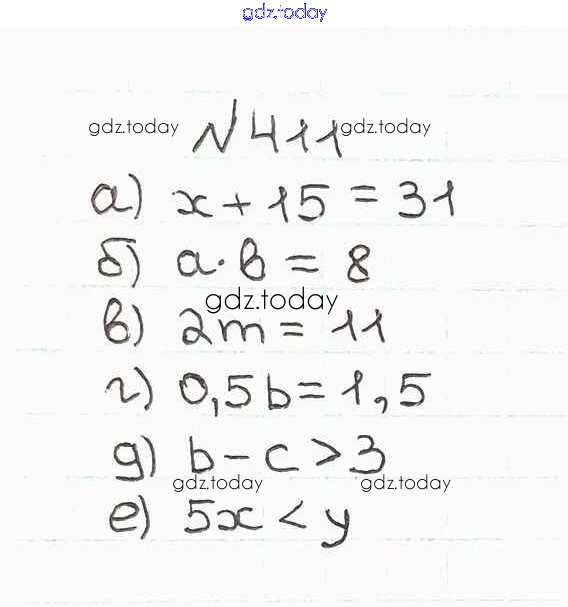 gdz.today
gdz.today №411 gdz.today
а) x + 15 = 31
б) a · b = 8
gdz.today
в) 2m = 11
г) 0,5b = 1,5
д) b - c > 3
gdz.today gdz.today
е) 5x < y